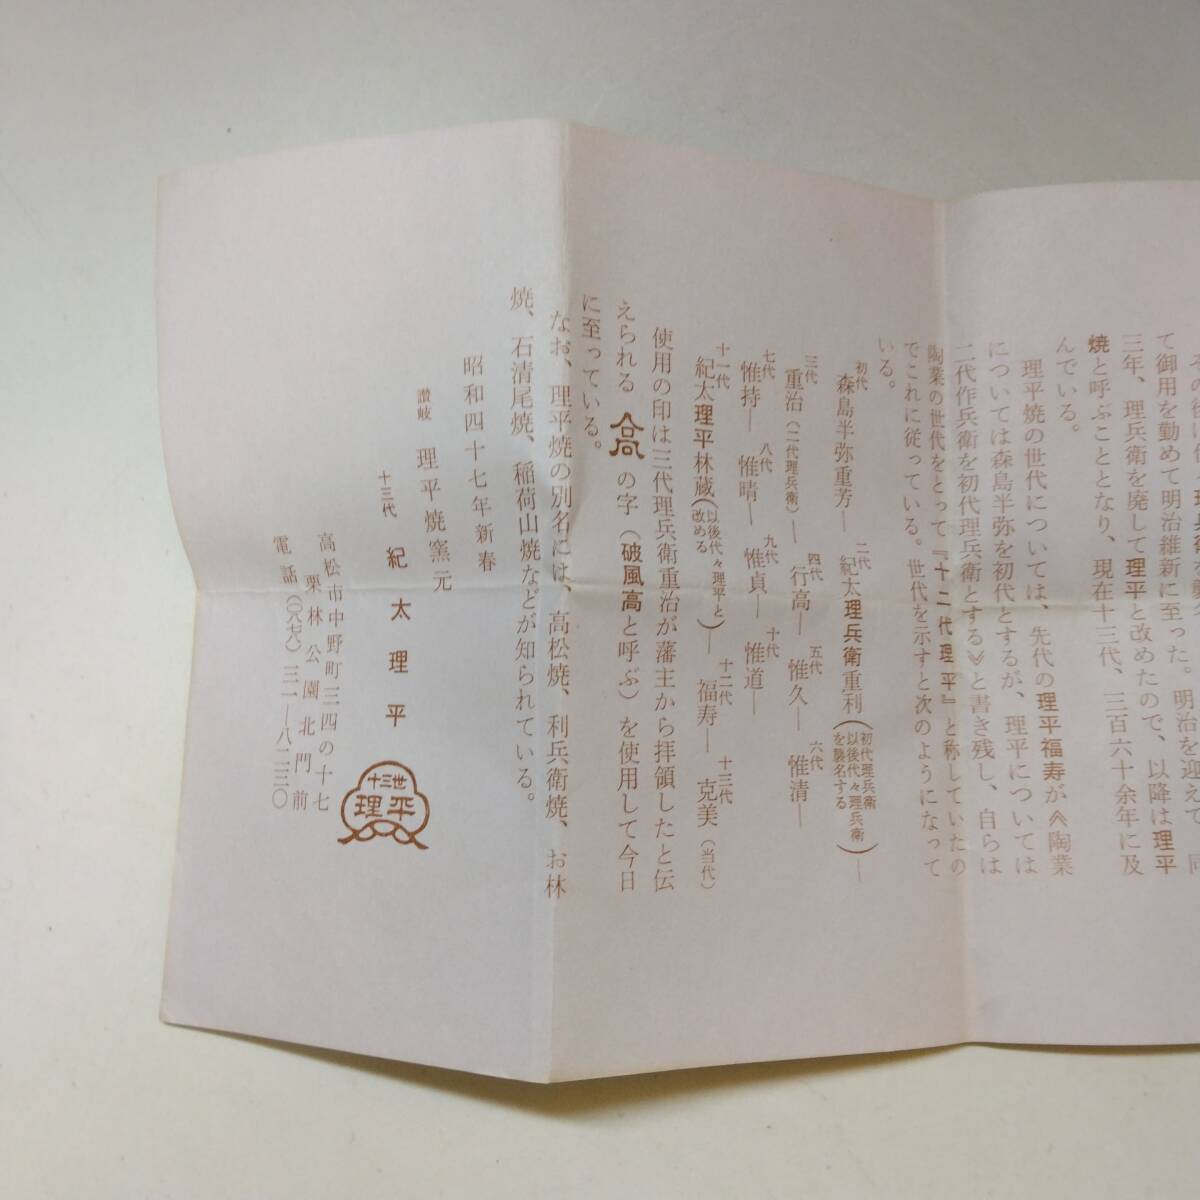 て御用を勤めて明治維新に至った。明治を迎えて、同
三年、理兵衛を廃して理平と改めたので、以降は理平
焼と呼ぶこととなり、現在十三代、三百六十余年に及
んでいる。
理平焼の世代については、先代の理平福寿が《陶業
については森島半弥を初代とするが、理平については
二代作兵衛を初代理兵衛とする》と書き残し、自らは
陶業の世代をとって『十二代理平』と称していたの
でこれに従っている。世代を示すと次のようになって
いる。
初代 森島半弥重芳― 二代 紀太理兵衛重利(初代理兵衛 以後代々理兵衛を襲名する)―
三代 重治(二代理兵衛)― 四代 行高― 五代 惟久― 六代 惟清―
七代 惟持― 八代 惟晴― 九代 惟貞― 十代 惟道―
十一代 紀太理平林蔵(以後代々理平と改める)― 十二代 福寿― 十三代 克美(当代)
使用の印は三代理兵衛重治が藩主から拝領したと伝
えられる 高 の字(破風高と呼ぶ)を使用して今日
に至っている。
なお、理平焼の別名には、高松焼、利兵衛焼、お林
焼、石清尾焼、稲荷山焼などが知られている。
昭和四十七年新春
讃岐 理平焼窯元
十三代 紀太理平
十三世
理平
高松市中野町三四の十七
栗林公園北門前
電話(〇八七八)三一―八二三〇